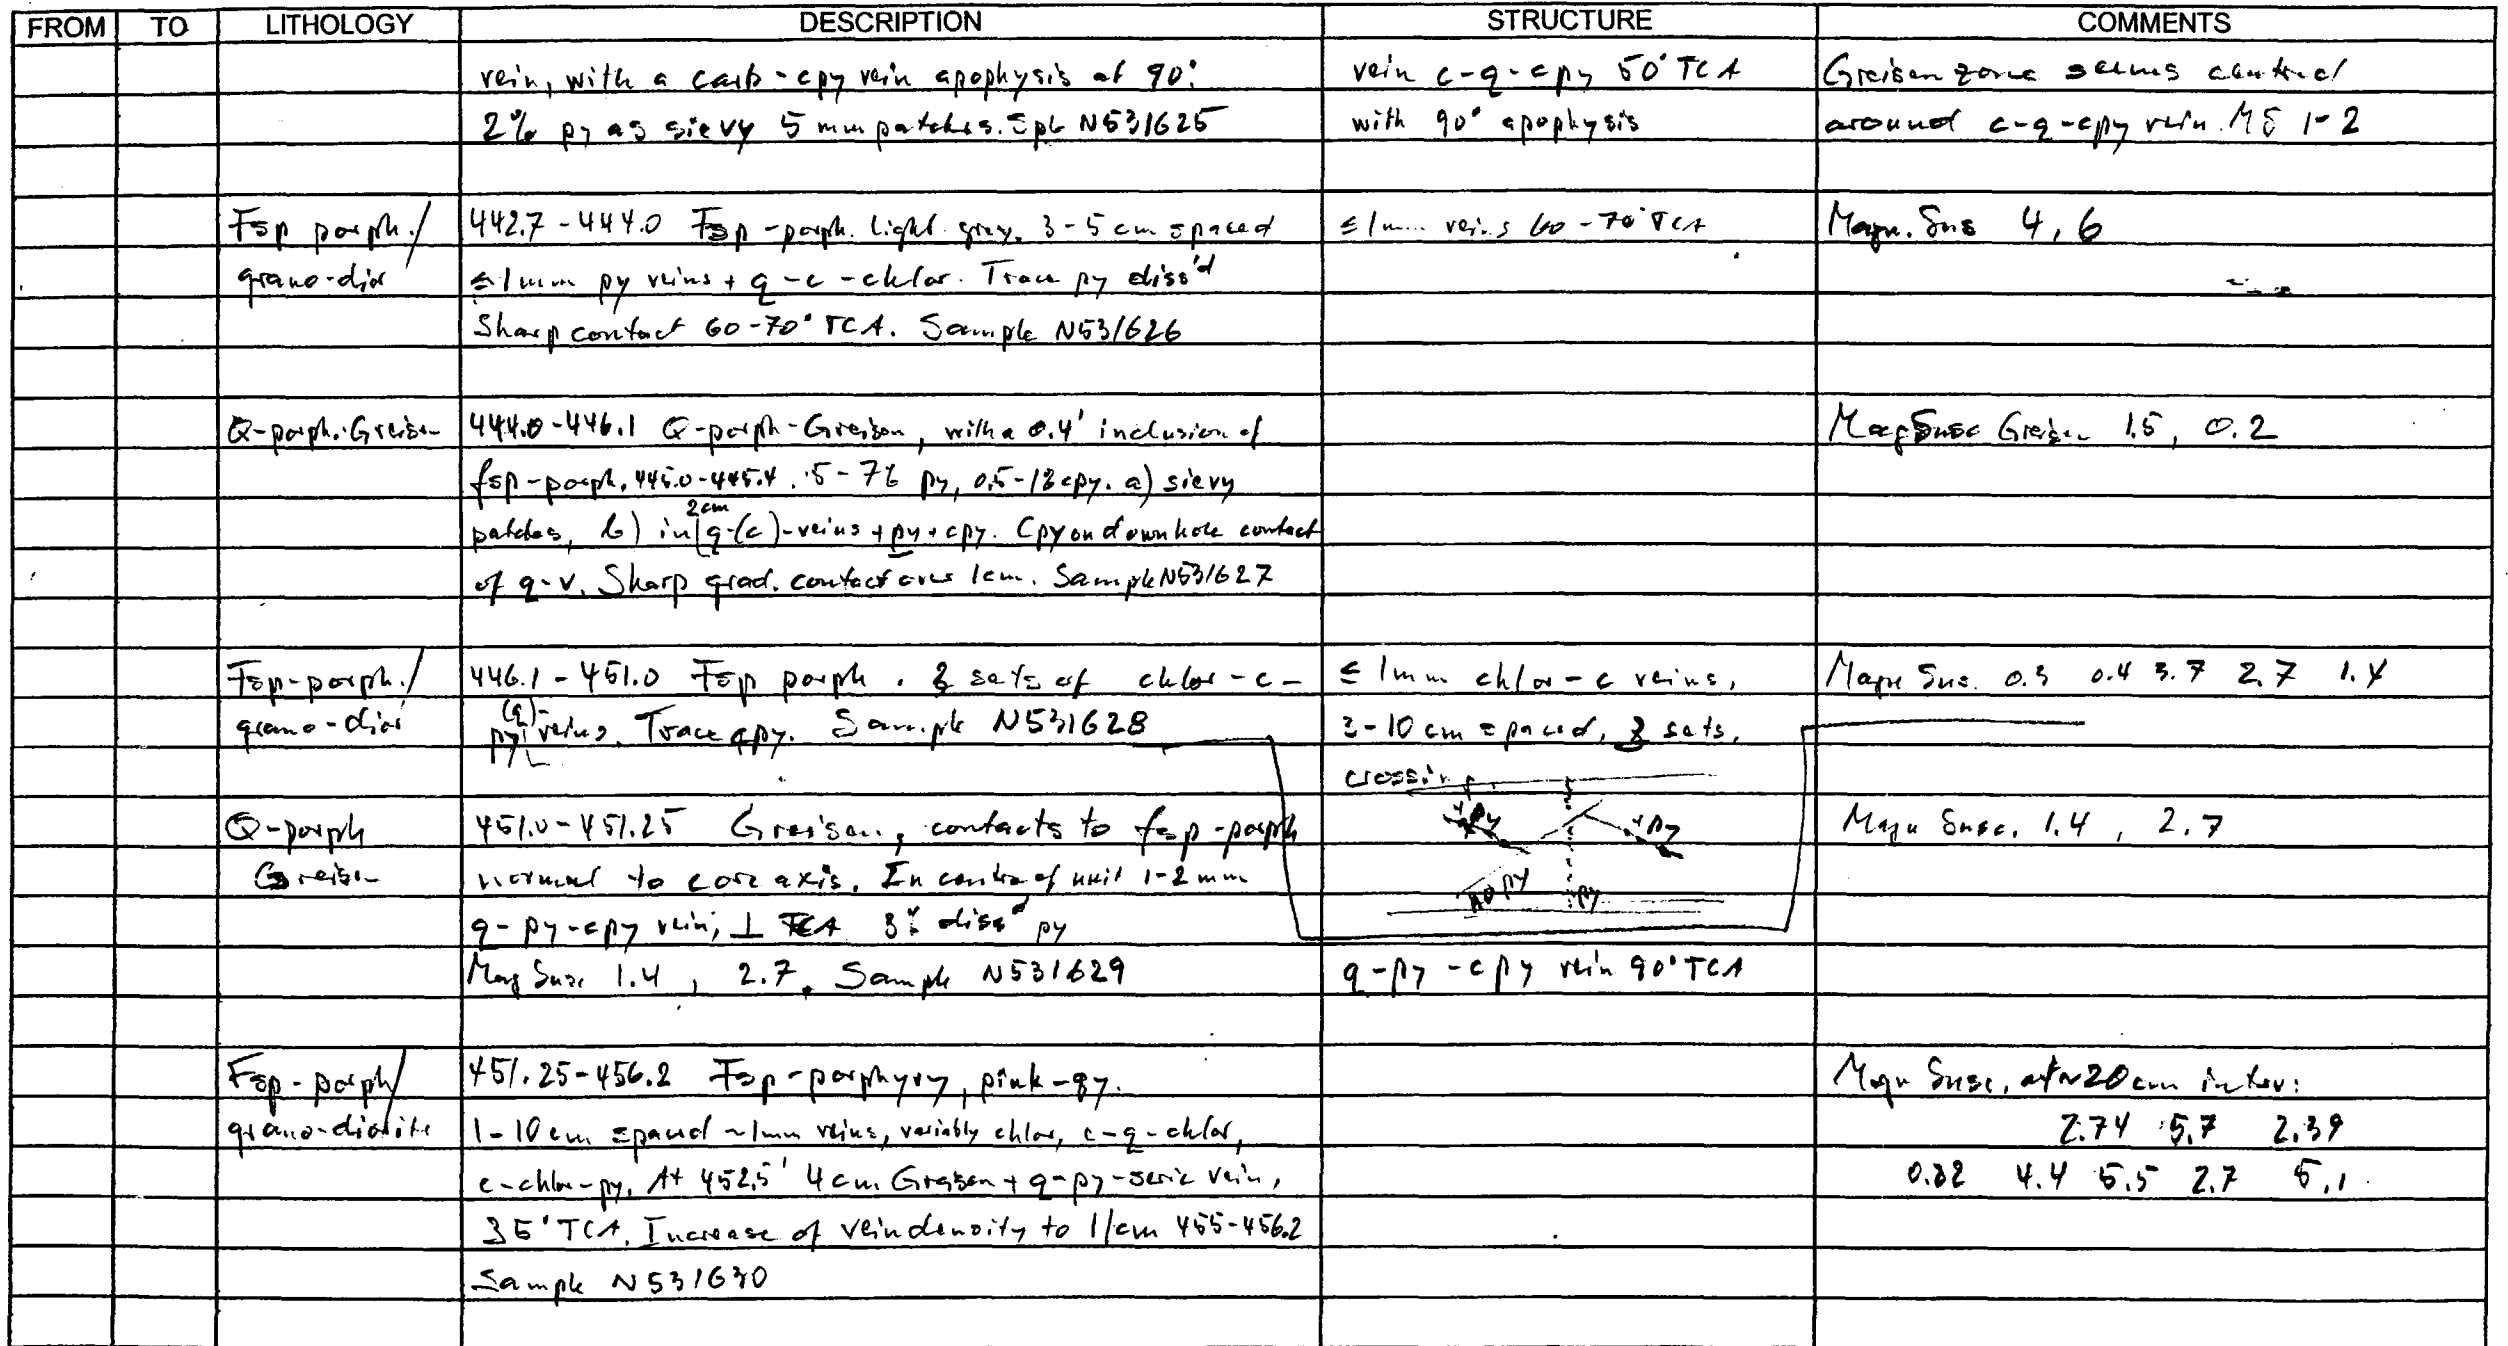 FROM TO LITHOLOGY DESCRIPTION STRUCTURE COMMENTS
vein, with a carb-cpy vein apophysis at 90° vein c-q-cpy 50° TCA Greisen zone seems central
2% py as sievy 5 mm patches. Spl N531625 with 90° apophysis around c-q-cpy vein. MS 1-2
Fsp porph./ 442.7-444.0 Fsp-porph. light grey. 3-5 cm spaced ≤1mm veins 60-70° TCA Magn. Sus 4, 6
grano-dior ≤1mm py veins + q-c-chlor. Trace py diss'd
Sharp contact 60-70° TCA. Sample N531626
Q-porph. Greisen 444.0-446.1 Q-porph-Greisen, with a 0.4' inclusion of Mag Susc Greisen 1.5, 0.2
fsp-porph. 445.0-445.4. 5-7% py, 0.5-1% cpy. a) sievy
patches, b) in 2cm q-(c)-veins + py + cpy. Cpy on downhole contact
of q-v. Sharp grad. contact over 1cm. Sample N531627
Fsp-porph./ 446.1-451.0 Fsp porph. 3 sets of chlor-c- ≤1mm chlor-c veins, Magn Sus. 0.3 0.4 3.7 2.7 1.4
grano-dior py (q)-veins. Trace cpy. Sample N531628 3-10 cm spaced, 3 sets,
crossing
+py +py
Q-porph 451.0-451.25 Greisen, contacts to fsp-porph Magn Susc. 1.4, 2.7
Greisen normal to core axis. In centre of unit 1-2 mm
no py py
q-py-cpy vein, ⊥ TCA 3% diss'd py
Mag Susc 1.4, 2.7. Sample N531629 q-py-cpy vein 90° TCA
Fsp-porph/ 451.25-456.2 Fsp-porphyry, pink-gy. Magn Susc. at ~20 cm interv:
grano-diorite 1-10 cm spaced ~1mm veins, variably chlor, c-q-chlor, 2.74 5.7 2.39
c-chlor-py. At 452.5' 4 cm Greisen + q-py-seric vein, 0.82 4.4 5.5 2.7 5.1
35° TCA. Increase of vein density to 1/cm 455-456.2
Sample N531630